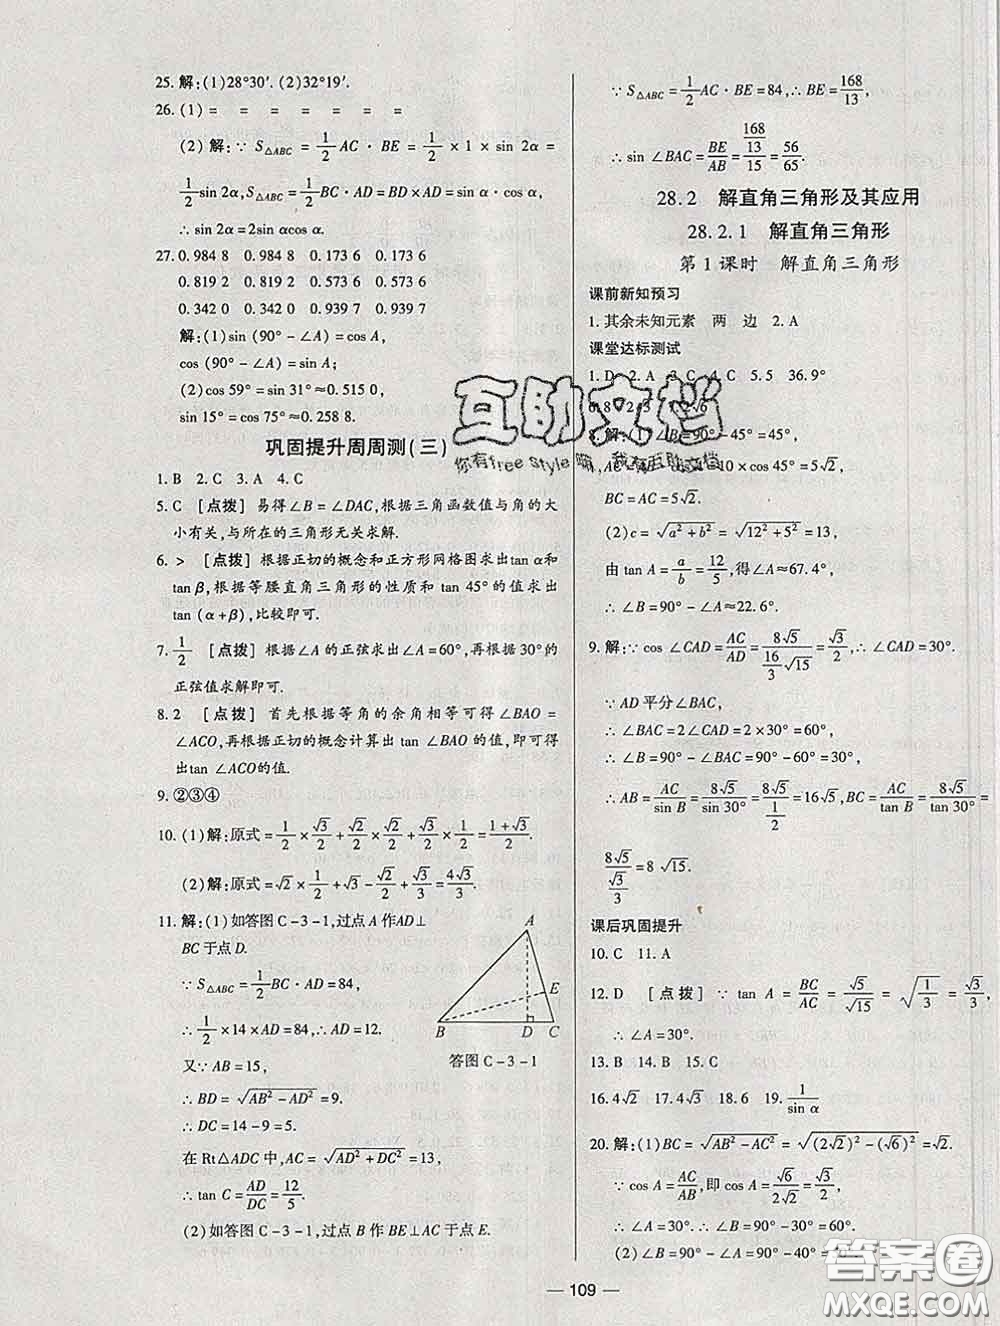 25. 解:(1)28°30′. (2)32°19′.
26. (1) = = = = = =
(2)解:∵ S△ABC = 1/2 AC · BE = 1/2 × 1 × sin 2α =
1/2 sin 2α, S△ABC = 1/2 BC · AD = BD × AD = sin α · cos α,
∴ sin 2α = 2sin αcos α.
27. 0.984 8 0.984 8 0.173 6 0.173 6
0.819 2 0.819 2 0.573 6 0.573 6
0.342 0 0.342 0 0.939 7 0.939 7
解:(1)sin (90° − ∠A) = cos A,
cos (90° − ∠A) = sin A;
(2)cos 59° = sin 31° ≈ 0.515 0,
sin 15° = cos 75° ≈ 0.258 8.
巩固提升周周测(三)
1. B 2. C 3. A 4. C
5. C [点拨] 易得∠B = ∠DAC,根据三角函数值与角的大
小有关,与所在的三角形无关求解.
6. > [点拨] 根据正切的概念和正方形网格图求出tan α和
tan β,根据等腰直角三角形的性质和 tan 45°的值求出
tan (α+β),比较即可.
7. 1/2 [点拨] 根据∠A的正弦求出∠A=60°,再根据30°的
正弦值求解即可.
8. 2 [点拨] 首先根据等角的余角相等可得∠BAO =
∠ACO,再根据正切的概念计算出 tan ∠BAO 的值,即可得
出tan ∠ACO的值.
9. ②③④
10. (1)解:原式 = 1/2 × √3/2 + √2/2 × √2/2 + √3/2 × 1/2 = (1+√3)/2.
(2)解:原式 = √2 × 1/2 + √3 − √2/2 + √3/3 = 4√3/3.
11. 解:(1)如答图 C−3−1,过点 A 作AD⊥
BC 于点 D.
∵ S△ABC = 1/2 BC · AD = 84,
∴ 1/2 × 14 × AD = 84, ∴ AD = 12.
又∵ AB = 15,
∴ BD = √(AB² − AD²) = 9.
∴ DC = 14 − 9 = 5.
在 Rt△ADC 中, AC = √(AD² + DC²) = 13,
∴ tan C = AD/DC = 12/5.
(2)如答图 C−3−1,过点 B 作 BE⊥AC 于点 E.
A
E
B D C
答图 C−3−1
∵ S△ABC = 1/2 AC · BE = 84, ∴ BE = 168/13,
∴ sin ∠BAC = BE/AB = (168/13)/15 = 56/65.
28.2 解直角三角形及其应用
28.2.1 解直角三角形
第 1 课时 解直角三角形
课前新知预习
1. 其余未知元素 两 边 2. A
课堂达标测试
1. D 2. A 3. C 4. C 5. 5 36.9°
8. 解: ∠B = 90° − 45° = 45°,
10 × cos 45° = 5√2,
BC = AC = 5√2.
(2)c = √(a² + b²) = √(12² + 5²) = 13,
由 tan A = a/b = 12/5,得∠A≈67.4°.
∴ ∠B = 90° − ∠A ≈ 22.6°.
9. 解:∵ cos ∠CAD = AC/AD = 8√5/(16/3 √15) = √3/2, ∴ ∠CAD = 30°.
∵ AD 平分∠BAC,
∴ ∠BAC = 2∠CAD = 2 × 30° = 60°,
∴ ∠B = 90° − ∠BAC = 90° − 60° = 30°,
∴ AB = AC/sin B = 8√5/sin 30° = 8√5/(1/2) = 16√5, BC = AC/tan B = 8√5/tan 30° =
8√5/(√3/3) = 8√15.
课后巩固提升
10. C 11. A
12. D [点拨] ∵ tan A = BC/AC = √5/√15 = √(1/3) = √3/3,
∴ ∠A = 30°.
13. B 14. B 15. C
16. 4√2 17. 4√3 18. 6 19. 1/sin α
20. 解:(1)BC = √(AB² − AC²) = √((2√2)² − (√6)²) = √2.
∵ cos A = AC/AB,即 cos A = √6/(2√2) = √3/2,
∴ ∠A = 30°, ∴ ∠B = 90° − ∠A = 90° − 30° = 60°
(2)∠B = 90° − ∠A = 90° − 40° =
— 109 —
互助文档
你有free style 嘛 我有互助文档
答案圈
MXQE.COM